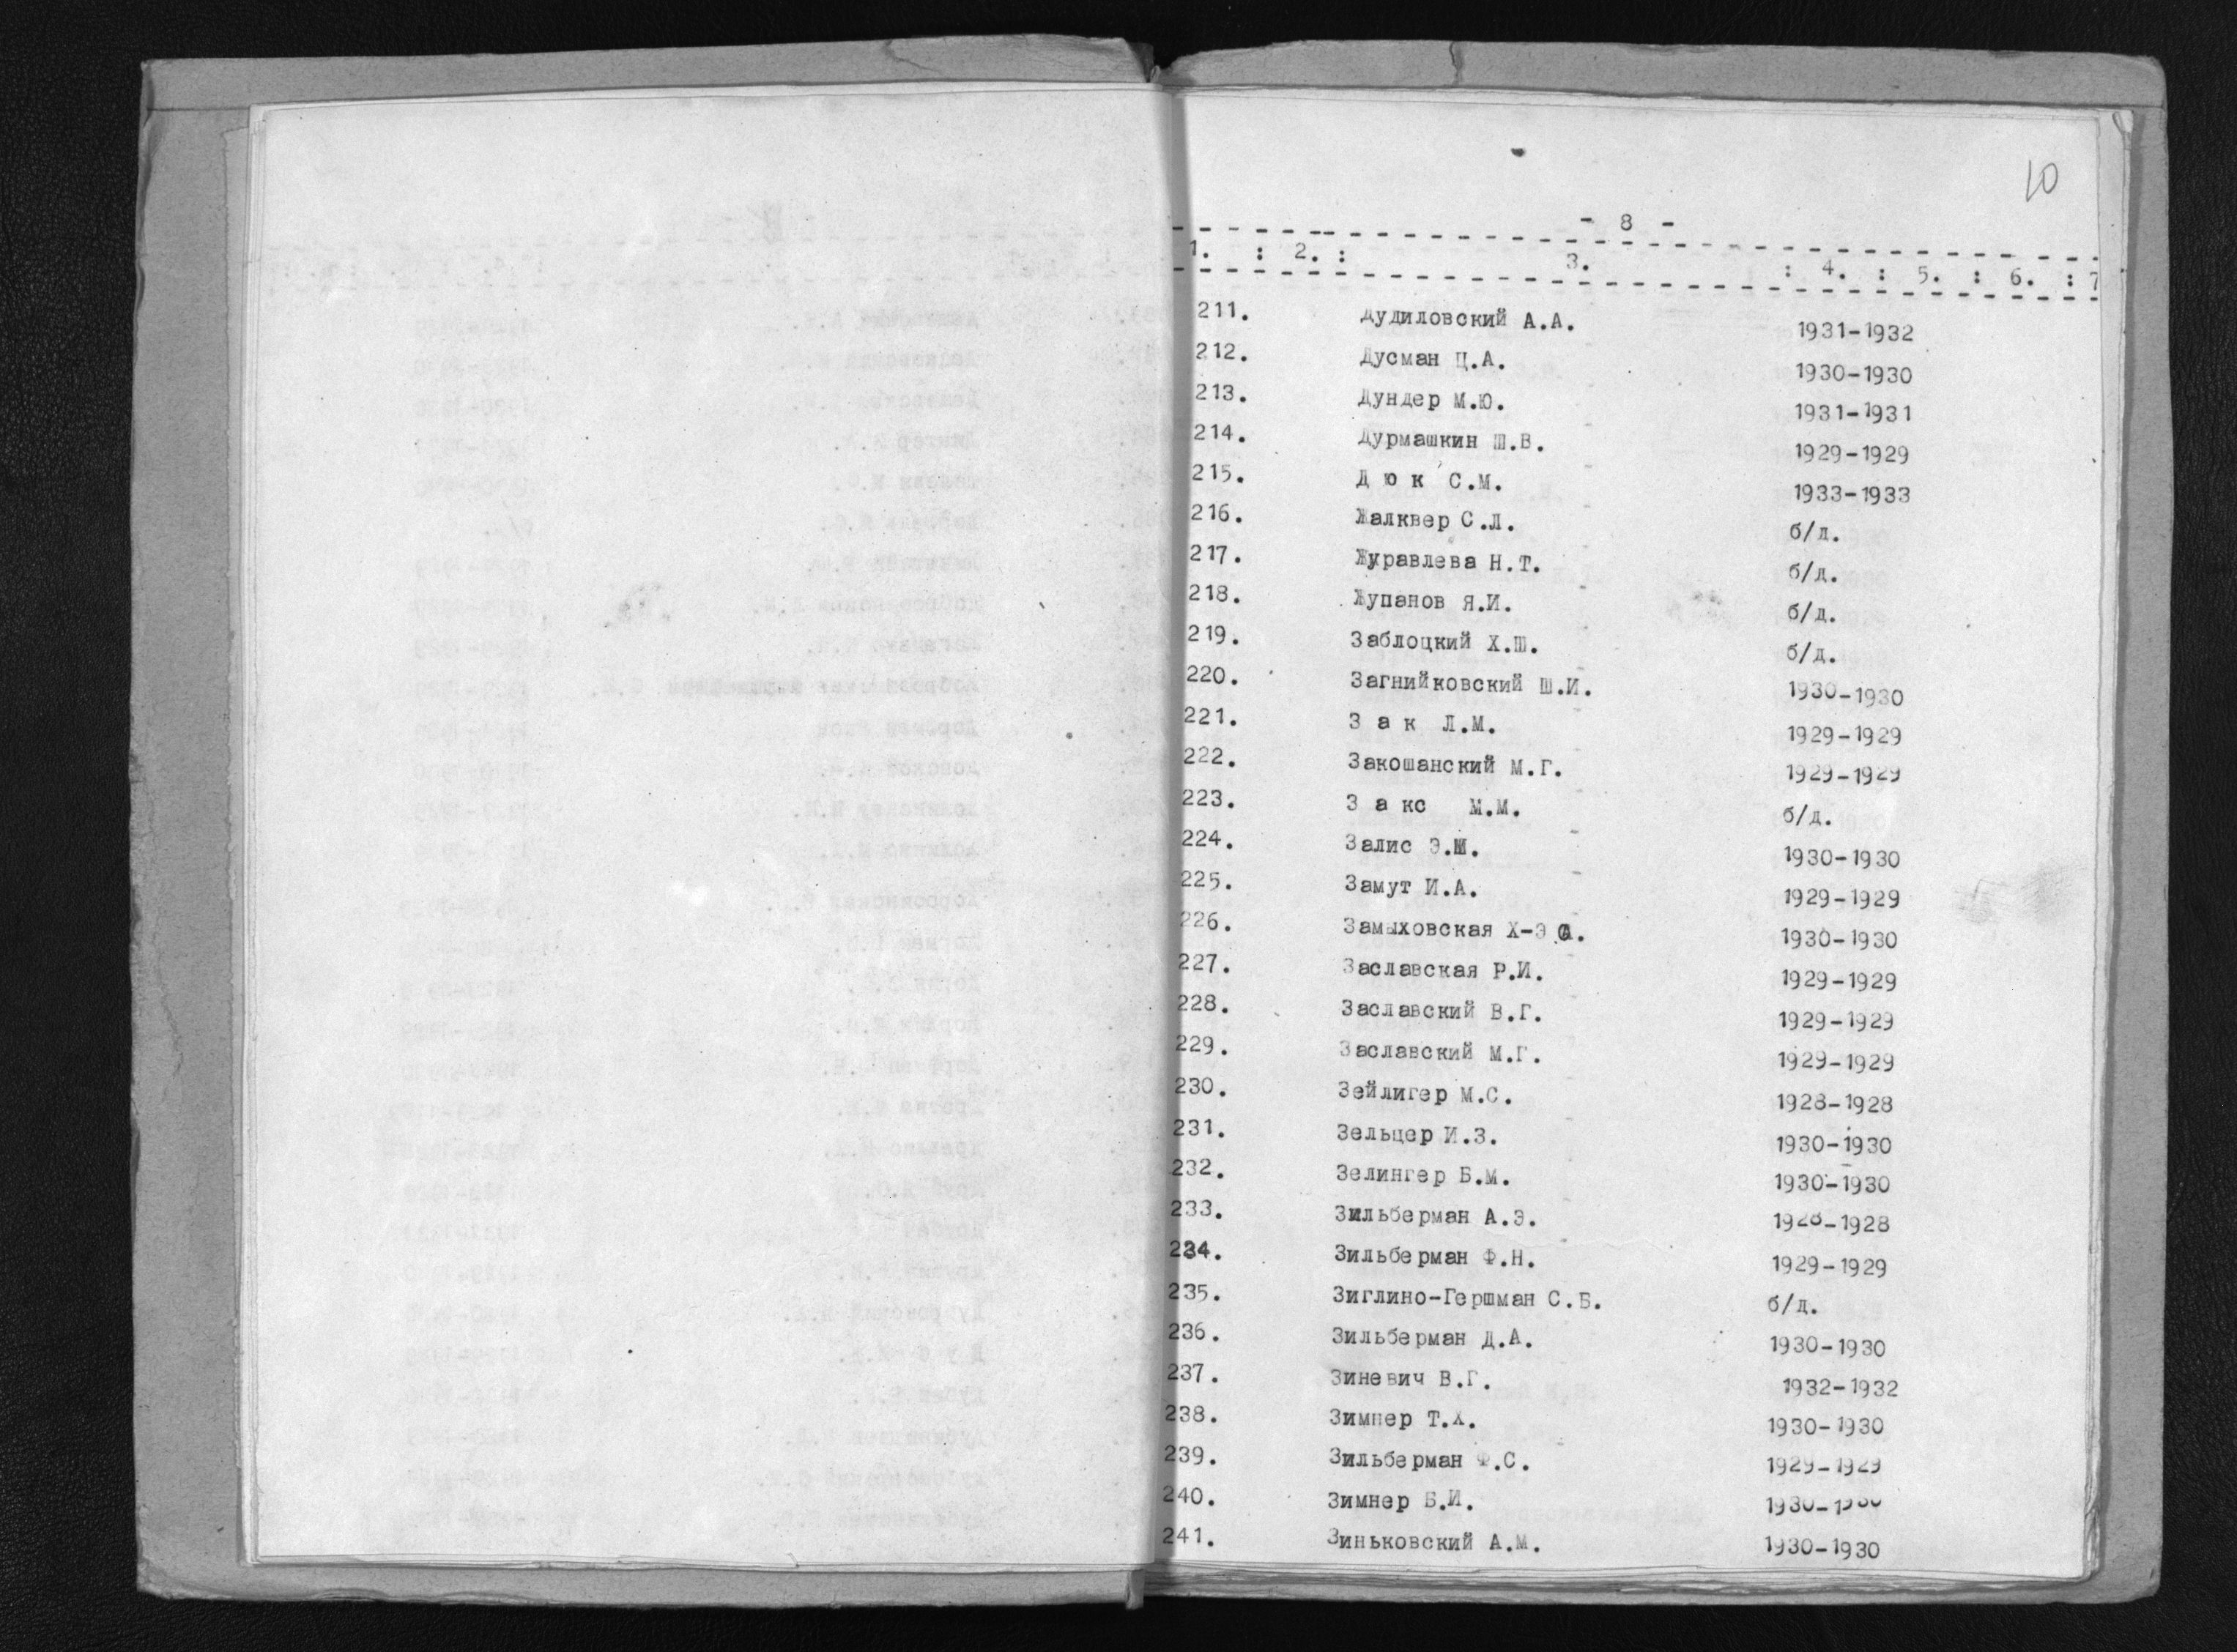 10
- 8 -
1. : 2. : 3. : 4. : 5. : 6. : 7
211. Дудиловский А.А. 1931-1932
212. Дусман Ц.А. 1930-1930
213. Дундер М.Ю. 1931-1931
214. Дурмашкин Ш.В. 1929-1929
215. Д ю к С.М. 1933-1933
216. Жалквер С.Л. б/д.
217. Журавлева Н.Т. б/д.
218. Жупанов Я.И. б/д.
219. Заблоцкий Х.Ш. б/д.
220. Загнийковский Ш.И. 1930-1930
221. З а к Л.М. 1929-1929
222. Закошанский М.Г. 1929-1929
223. З а кс М.М. б/д.
224. Залис Э.Ш. 1930-1930
225. Замут И.А. 1929-1929
226. Замыховская Х-Э 1930-1930
227. Заславская Р.И. 1929-1929
228. Заславский В.Г. 1929-1929
229. Заславский М.Г. 1929-1929
230. Зейлигер М.С. 1928-1928
231. Зельцер И.З. 1930-1930
232. Зелингер Б.М. 1930-1930
233. Зильберман А.Э. 1928-1928
234. Зильберман Ф.Н. 1929-1929
235. Зиглино-Гершман С.Б. б/д.
236. Зильберман Д.А. 1930-1930
237. Зиневич В.Г. 1932-1932
238. Зимнер Т.Х. 1930-1930
239. Зильберман Ф.С. 1929-1929
240. Зимнер Б.И. 1930-1930
241. Зиньковский А.М. 1930-1930